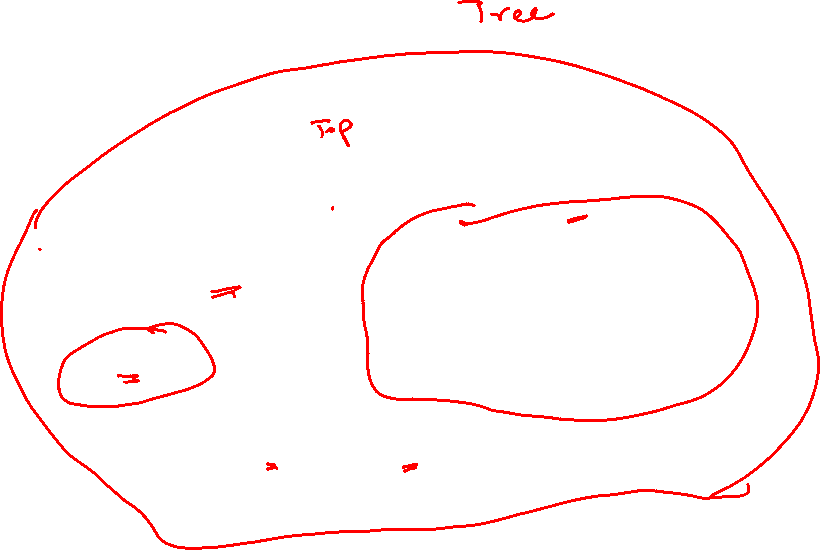 Tree
Top